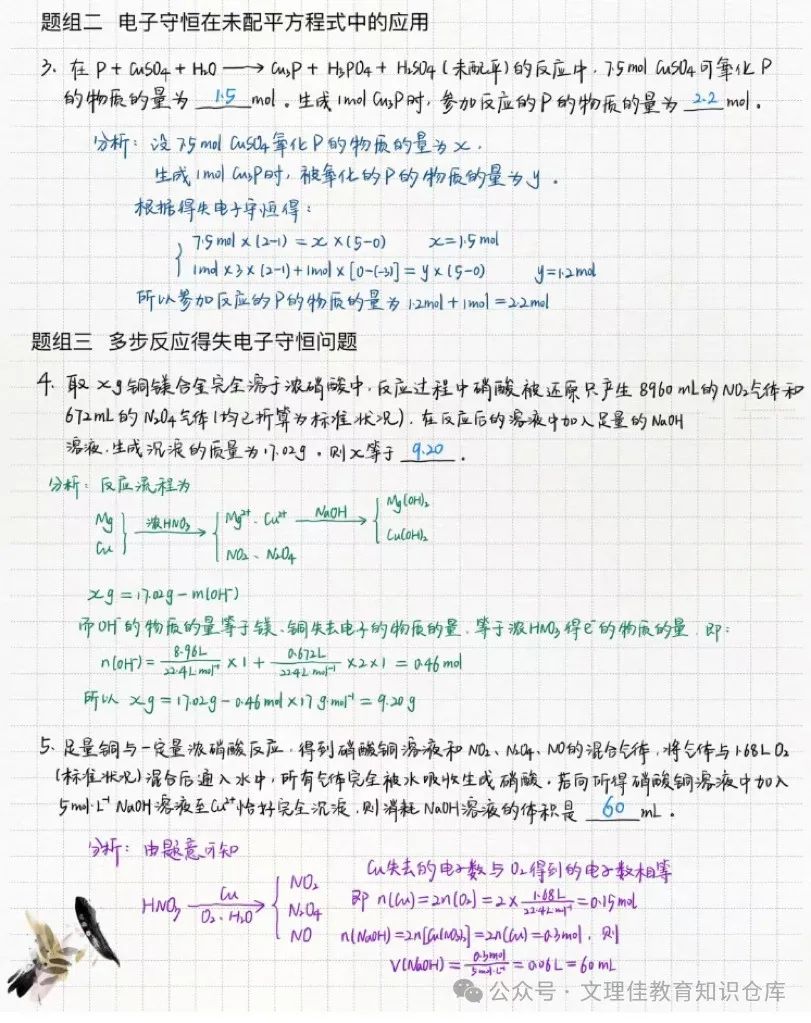 题组二 电子守恒在未配平方程式中的应用
3. 在 P + CuSO₄ + H₂O ⟶ Cu₃P + H₃PO₄ + H₂SO₄ (未配平) 的反应中, 7.5 mol CuSO₄ 可氧化 P
的物质的量为 1.5 mol。生成 1mol Cu₃P 时, 参加反应的 P 的物质的量为 2.2 mol。
分析: 设 7.5 mol CuSO₄ 氧化 P 的物质的量为 x,
生成 1mol Cu₃P 时, 被氧化的 P 的物质的量为 y。
根据得失电子守恒得:
7.5 mol × (2-1) = x × (5-0) x = 1.5 mol
1mol × 3 × (2-1) + 1mol × [0-(-3)] = y × (5-0) y = 1.2 mol
所以参加反应的 P 的物质的量为 1.2mol + 1mol = 2.2mol
题组三 多步反应得失电子守恒问题
4. 取 x g 铜镁合金完全溶于浓硝酸中, 反应过程中硝酸被还原只产生 8960 mL 的 NO₂ 气体和
672 mL 的 N₂O₄ 气体 (均已折算为标准状况), 在反应后的溶液中加入足量的 NaOH
溶液, 生成沉淀的质量为 17.02g。则 x 等于 9.20。
分析: 反应流程为
Mg Cu 浓HNO₃ → Mg²⁺、Cu²⁺ NaOH → Mg(OH)₂ Cu(OH)₂
NO₂、N₂O₄
x g = 17.02g - m(OH⁻)
而 OH⁻ 的物质的量等于镁、铜失去电子的物质的量, 等于浓 HNO₃ 得 e⁻ 的物质的量, 即:
n(OH⁻) = 8.96L / 22.4L·mol⁻¹ × 1 + 0.672L / 22.4L·mol⁻¹ × 2 × 1 = 0.46 mol
所以 x g = 17.02g - 0.46 mol × 17 g·mol⁻¹ = 9.20 g
5. 足量铜与一定量浓硝酸反应, 得到硝酸铜溶液和 NO₂、N₂O₄、NO 的混合气体, 将气体与 1.68 L O₂
(标准状况) 混合后通入水中, 所有气体完全被水吸收生成硝酸。若向所得硝酸铜溶液中加入
5 mol·L⁻¹ NaOH 溶液至 Cu²⁺ 恰好完全沉淀, 则消耗 NaOH 溶液的体积是 60 mL。
分析: 由题意可知
Cu 失去的电子数与 O₂ 得到的电子数相等
HNO₃ Cu / O₂、H₂O → NO₂ N₂O₄ NO
即 n(Cu) = 2n(O₂) = 2 × 1.68L / 22.4L·mol⁻¹ = 0.15mol
n(NaOH) = 2n[Cu(NO₃)₂] = 2n(Cu) = 0.3mol, 则
V(NaOH) = 0.3mol / 5mol·L⁻¹ = 0.06L = 60 mL
公众号 · 文理佳教育知识仓库